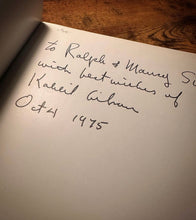 to Ralph & Maury
with best wishes of
Kahlil Gibran
Oct 4 1975